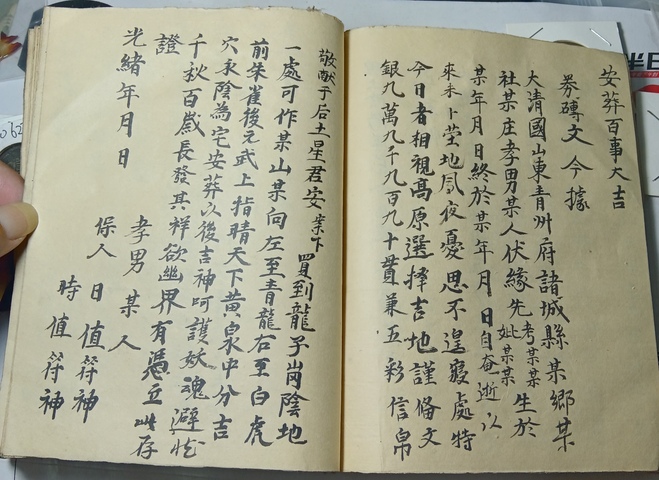 安葬百事大吉
券磚文 今據
大清國山東青州府諸城縣某鄉某
社某庄孝男某人伏緣先考某某妣某某生於
某年月日終於某年月日自奄逝以
來未卜塋地夙夜憂思不遑寢處特
今日者相視高原選擇吉地謹備文
銀九萬九千九百九十貫兼五彩信帛
敬献于后土星君安案下買到龍子崗陰地
一處可作某山某向左至青龍右至白虎
前朱雀後元武上指晴天下黄泉中分吉
穴永陰為宅安葬以後吉神呵護妖魂避
千秋百歲長發其祥欲幽界有憑立此存
證
光緒年月日
孝男某人
保人日值符神
時值符神
半日